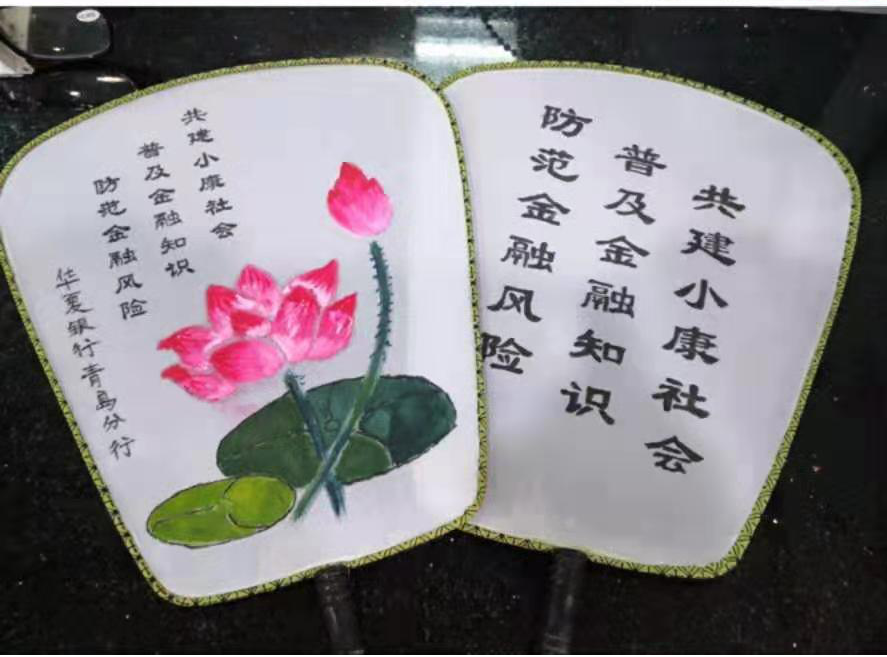 共建小康社会
普及金融知识
防范金融风险
华夏银行青岛分行
共建小康社会
普及金融知识
防范金融风险